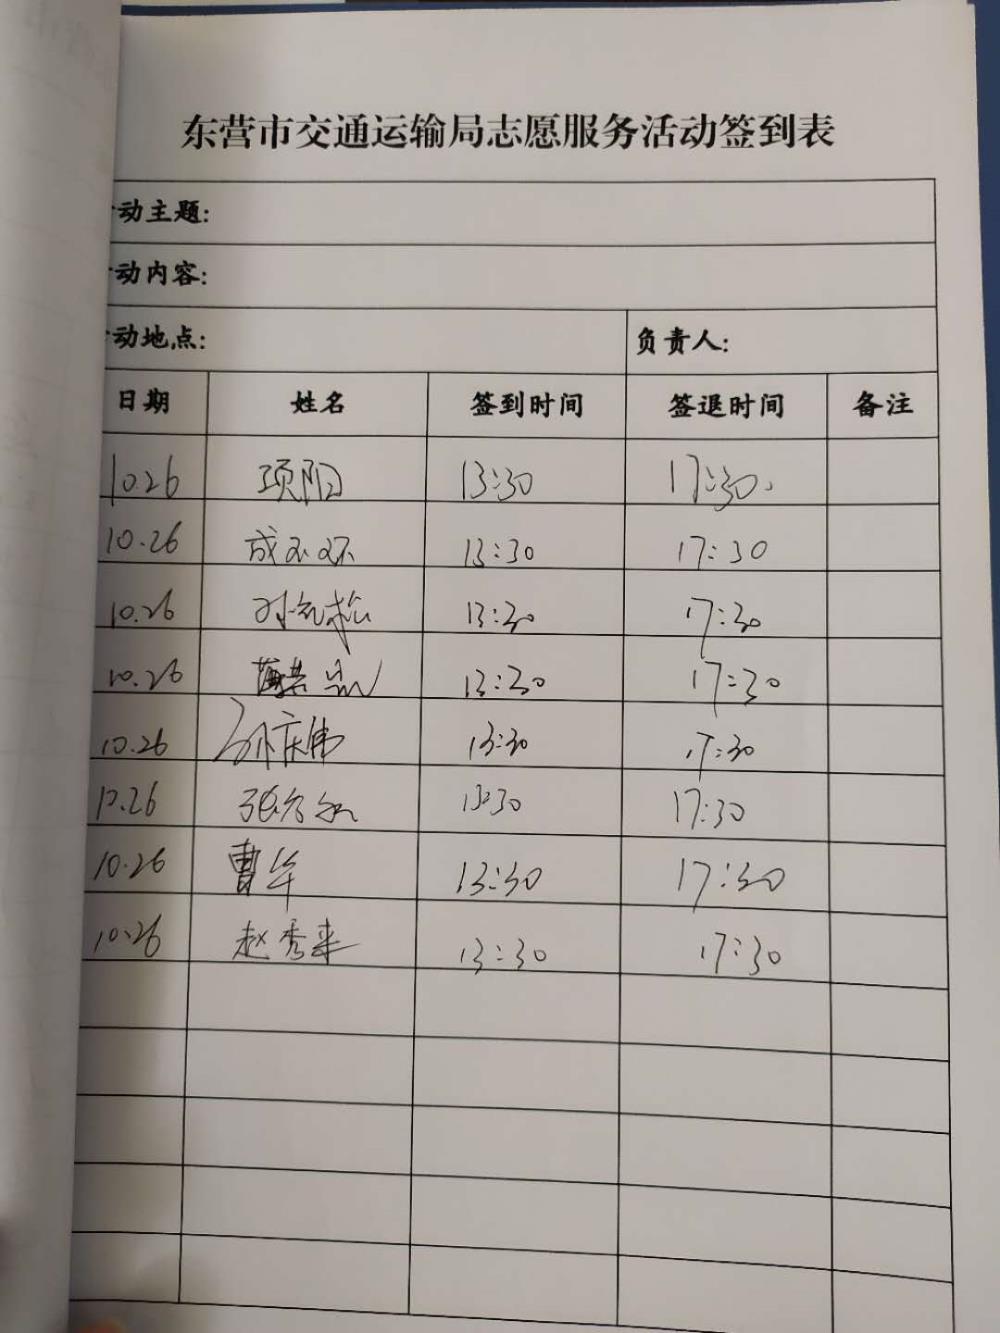 东营市交通运输局志愿服务活动签到表
动主题:
动内容:
动地点: 负责人:
日期 姓名 签到时间 签退时间 备注
10.26 项阳 13:30 17:30
10.26 13:30 17:30
10.26 13:30 17:30
10.26 13:30 17:30
10.26 孙庆伟 13:30 17:30
10.26 13:30 17:30
10.26 曹华 13:30 17:30
10.26 赵秀来 13:30 17:30